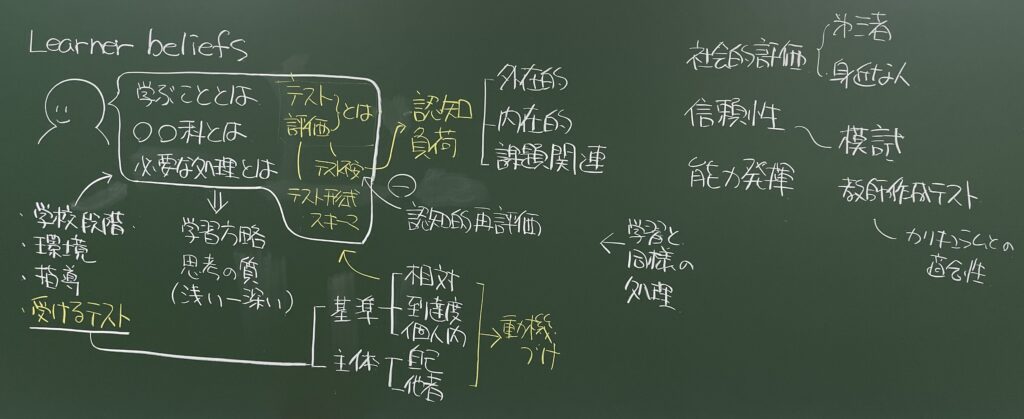 Learner beliefs
学ぶこととは
○○科とは
必要な処理とは
テスト
評価
とは
テスト不安
テスト形式
スキーマ
認知
負荷
外在的
内在的
課題関連
認知的再評価
・学校段階
・環境
・指導
・受けるテスト
学習方略
思考の質
(浅い-深い)
基準
相対
到達度
個人内
主体
自己
他者
動機
づけ
←学習と
同様の
処理
社会的評価
第三者
身近な人
信頼性
模試
能力発揮
教師作成テスト
カリキュラムとの
適合性